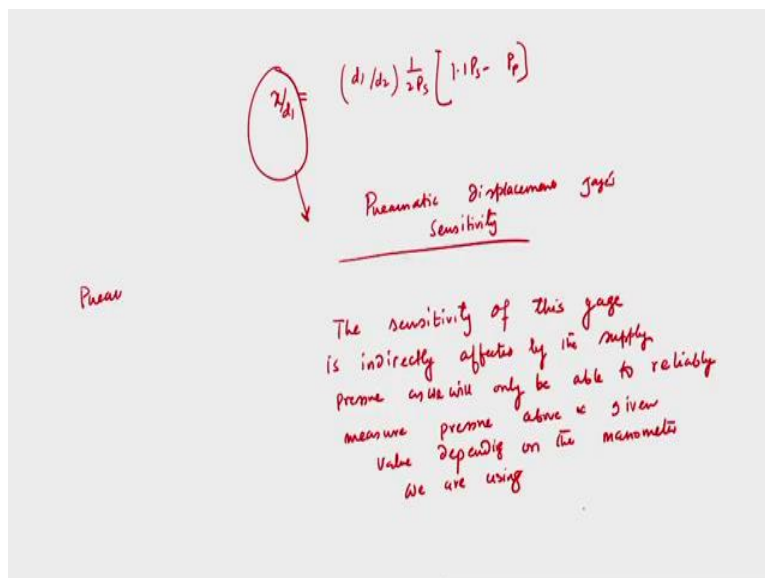 x/d1 = (d1/d2) 1/2Ps [1.1Ps - Pp]
Pneumatic Displacement gage's
Sensitivity
Pneu
The sensitivity of this gage
is indirectly affected by the supply
pressure as we will only be able to reliably
measure pressure above a given
value depending on the manometer
we are using